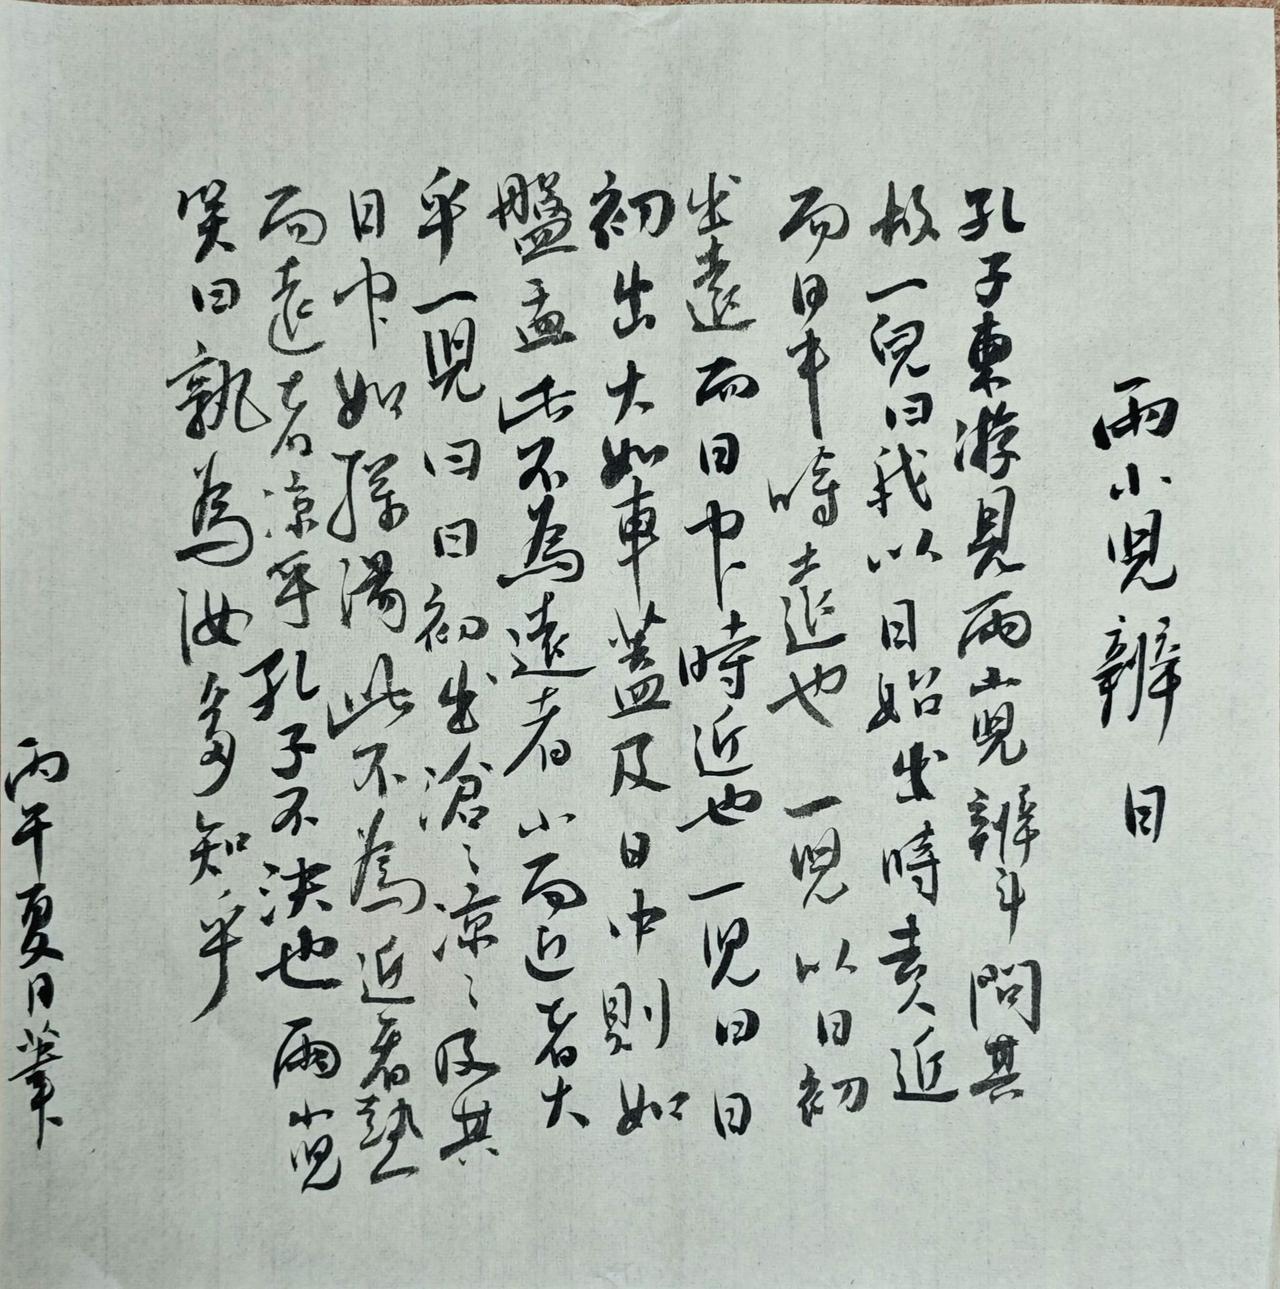 兩小児辨日
孔子東游見兩小児辨斗問其
故一兒曰我以日始出時去人近
而日中時遠也一児以日初
出遠而日中時近也一児曰日
初出大如車蓋及日中則如
盤盂此不為遠者小而近者大
乎一児曰日初出滄〻凉〻及其
日中如探湯此不為近者熱
而遠者凉乎孔子不决也兩小児
笑曰孰為汝多知乎
丙午夏日筆